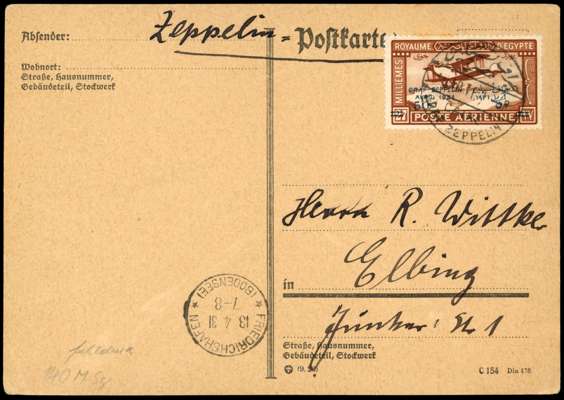 Absender:
Zeppelin = Postkarte
Wohnort:
Straße, Hausnummer,
Gebäudeteil, Stockwerk
ROYAUME D'EGYPTE
MILLIEMES
GRAF ZEPPELIN
AVRIL 1931
27 POSTE AERIENNE
ZEPPELIN
Herrn R. Wittke
in Elbing
Junker Str 1
FRIEDRICHSHAFEN
(BODENSEE)
13 4 31
7-8
Straße, Hausnummer,
Gebäudeteil, Stockwerk
C 154 Din 476